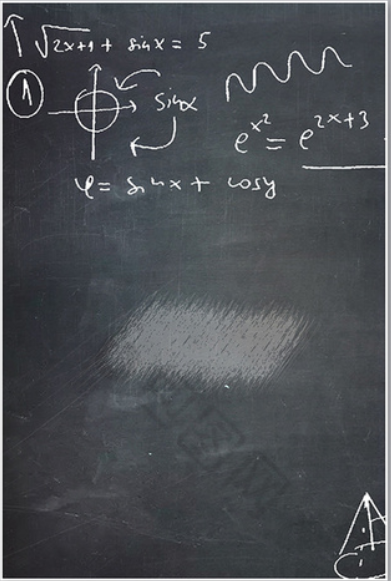 √2x+1 + sinx = 5
1
sinx
e^{x^2} = e^{2x+3}
φ = sinx + cosy